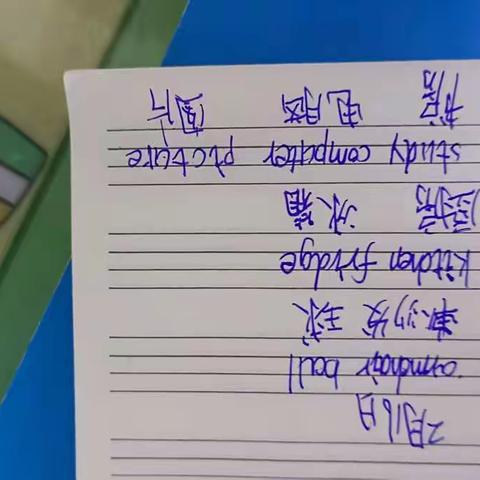 2月16日
armchair ball
单沙发 球
kitchen fridge
厨房 冰箱
study computer picture
书房 电脑 图片